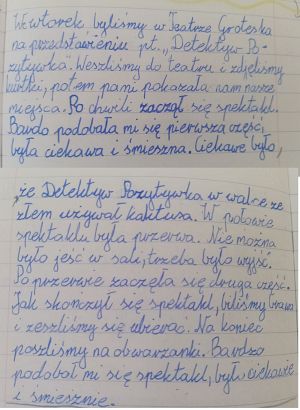 We wtorek byliśmy w Teatrze Groteska
na przedstawieniu pt. „Detektyw Po-
zytywka". Weszliśmy do teatru i zdjęliśmy
kurtki, potem pani pokazała nam nasze
miejsca. Po chwili zaczął się spektakl.
Bardzo podobała mi się pierwsza część,
była ciekawa i śmieszna. Ciekawe było,
że Detektyw Pozytywka w walce ze
złem używał kaktusa. W połowie
spektaklu była przerwa. Nie można
było jeść w sali, trzeba było wyjść.
Po przerwie zaczęła się druga część.
Jak skończył się spektakl, biliśmy brawa
i zeszliśmy się ubierać. Na koniec
poszliśmy na obwarzanki. Bardzo
podobał mi się spektakl, było ciekawie
i śmiesznie.